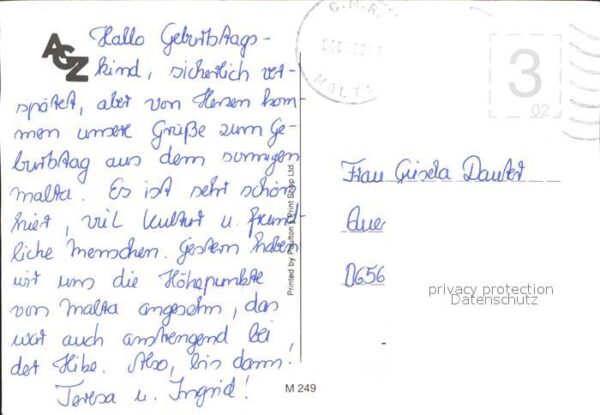 AGZ
Hallo Geburtstags-
kind, sicherlich ver-
spätet, aber von Herzen kom
men unsere Grüße zum Ge-
burtstag aus dem sonnigen
Malta. Es ist sehr schön
hier, viel Kultur u. freund
liche Menschen. Gestern haben
wir uns die Höhepunkte
von Malta angesehn, das
war auch anstrengend bei
der Hitze. Also, bis dann!
Teresa u. Ingrid!
Printed by Poulton's Print Shop Ltd.
M 249
G.M.R.
MALTA
3
02
Frau Gisela Dauter
Auer
D656
privacy protection
Datenschutz